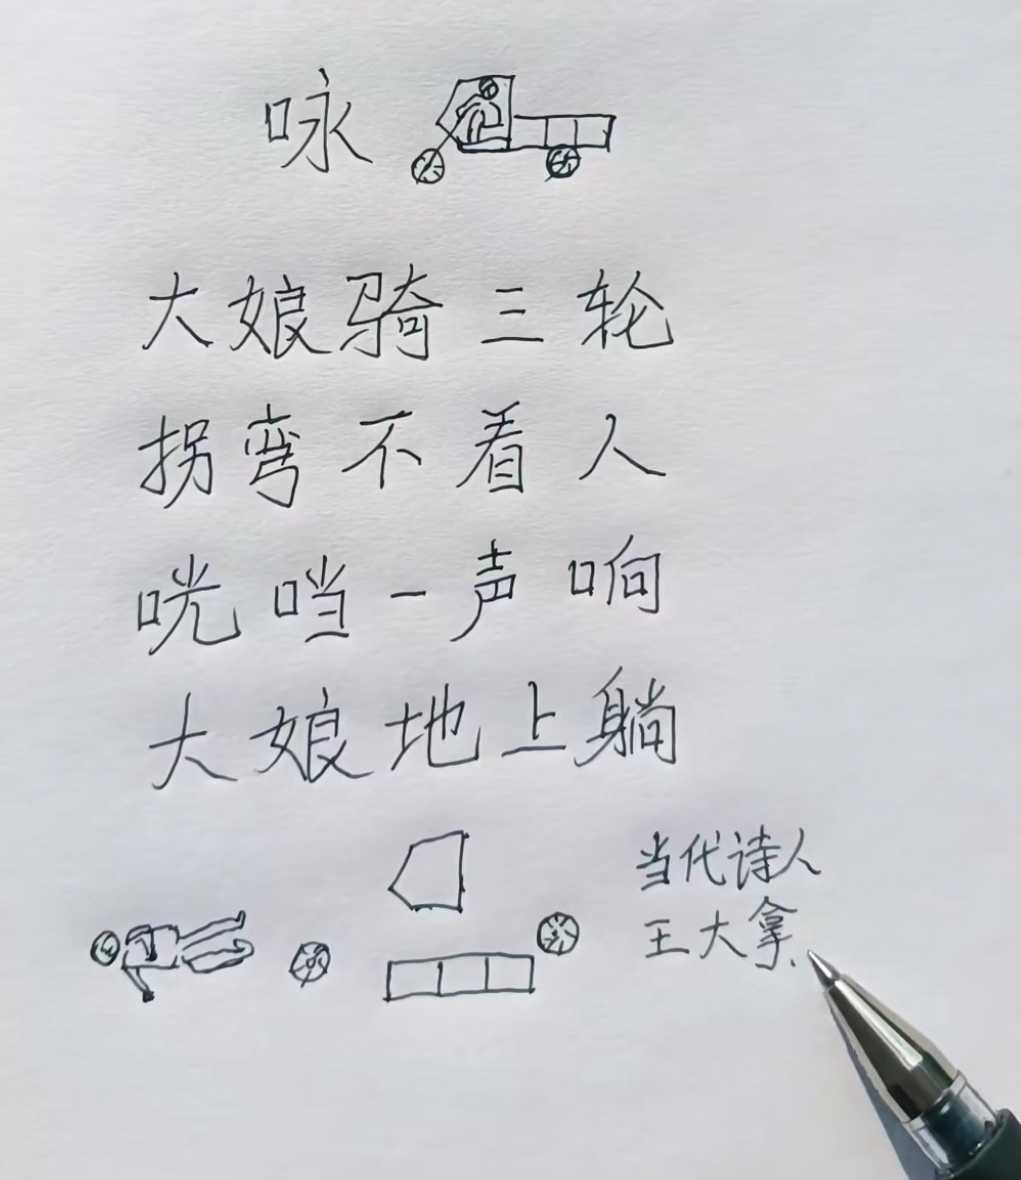 咏
大娘骑三轮
拐弯不看人
咣当一声响
大娘地上躺
当代诗人
王大拿